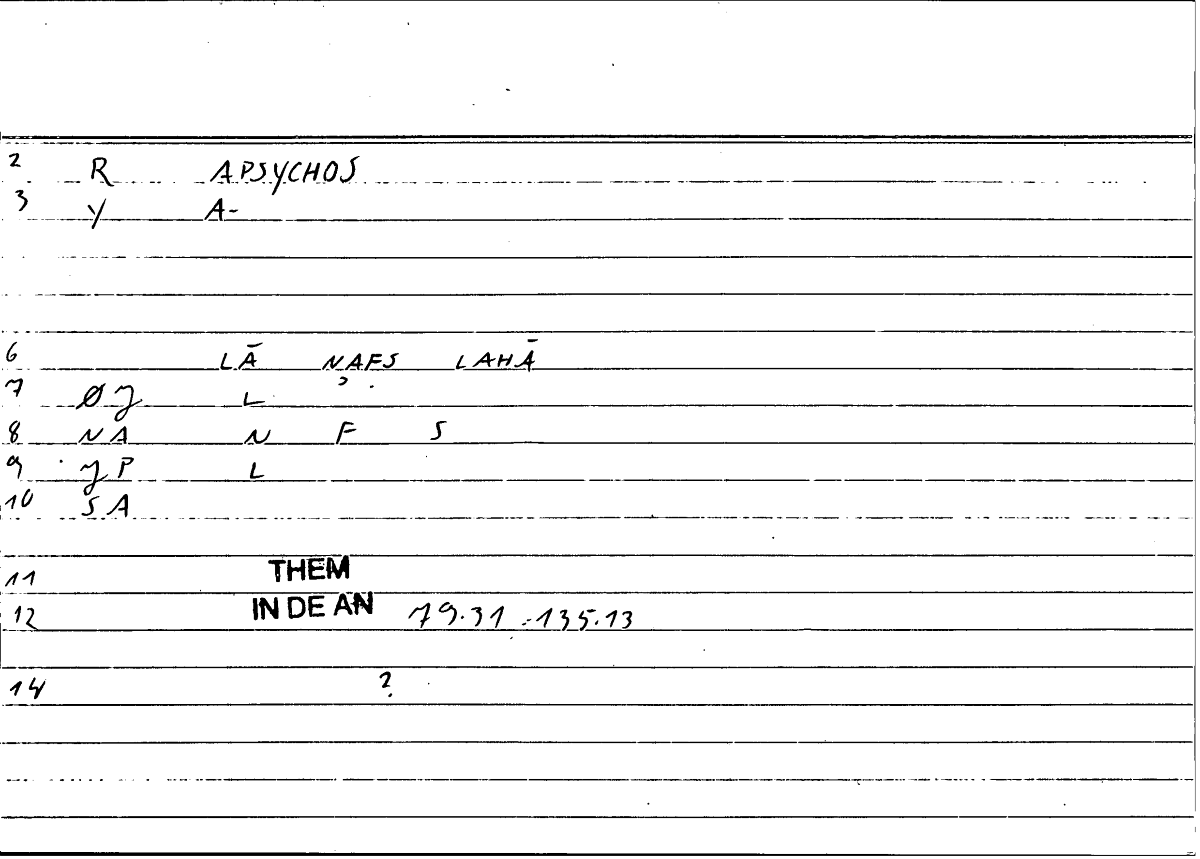 2 R APSYCHOS
3 Y A-
6 LĀ NAFS LAHĀ
7 ØJ L
8 NA N F S
9 JP L
10 SA
11 THEM
12 IN DE AN 79.31 -135.13
14 ?